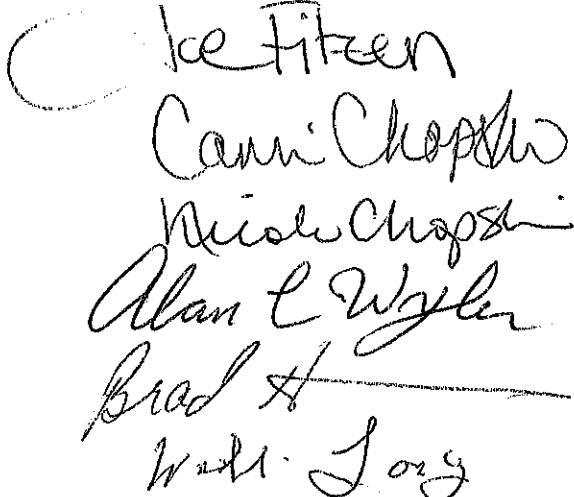 Ike Fitzen
Cami Chopski
Nicole Chopski
Alan C Wyler
Brad
Long